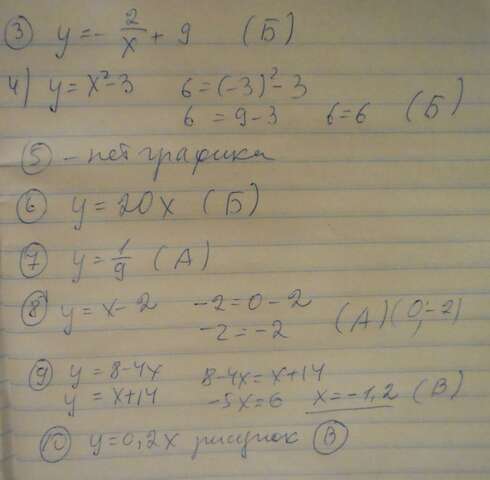 ③ y = - 2/x + 9 (Б)
4) y = x² - 3 6 = (-3)² - 3
6 = 9 - 3 6 = 6 (Б)
⑤ - нет графика
⑥ y = 20x (Б)
⑦ y = 1/9 (А)
⑧ y = x - 2 -2 = 0 - 2
-2 = -2 (А) (0; -2)
⑨ y = 8 - 4x 8 - 4x = x + 14
y = x + 14 -5x = 6 x = -1,2 (В)
⑩ y = 0,2x рисунок Ⓑ